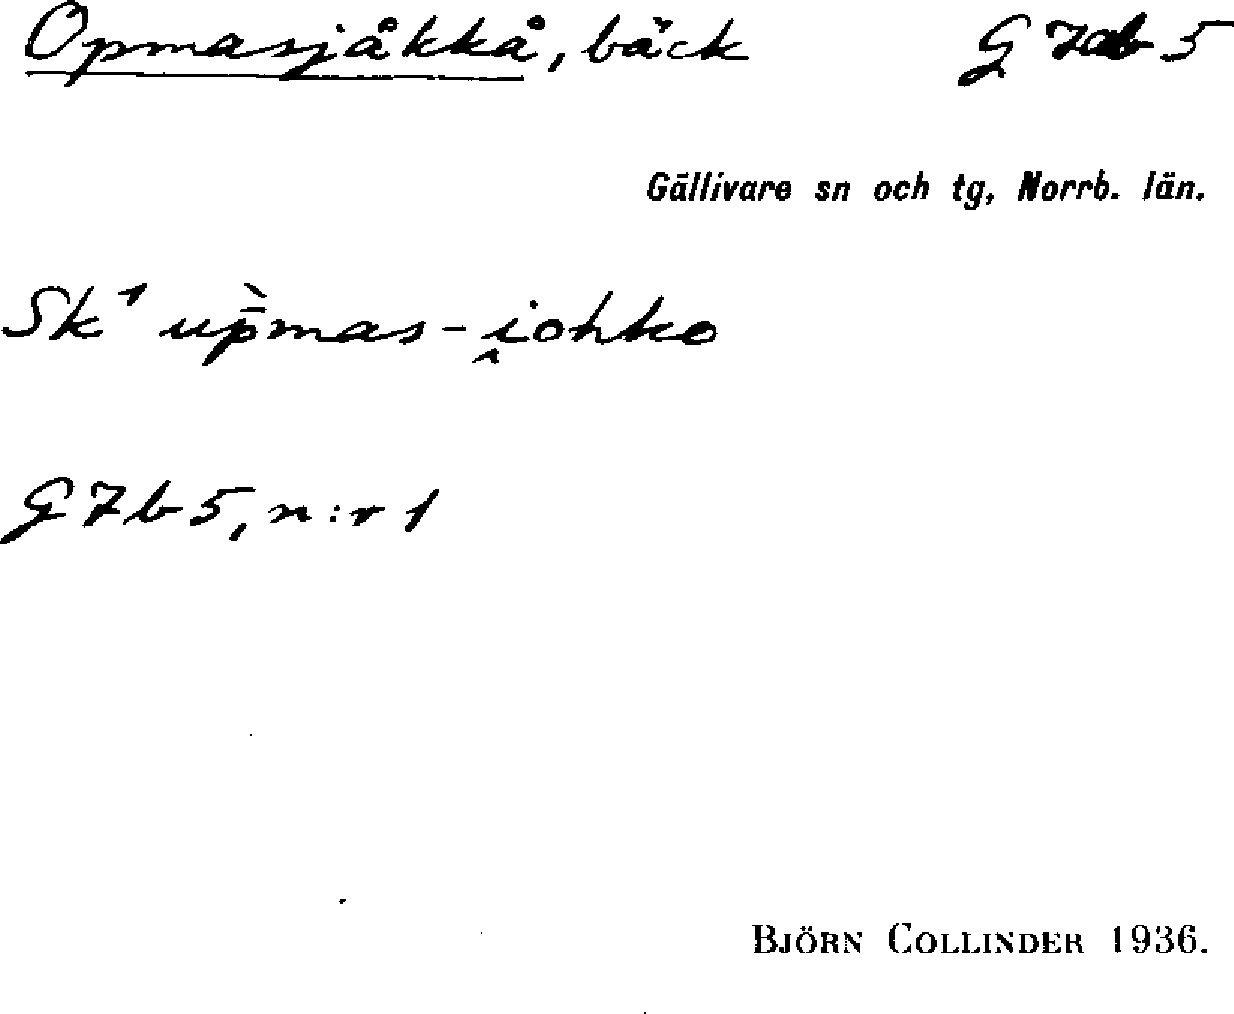 Opmasjåkkå, bäck G 7b 5
Gällivare sn och tg, Norrb. län.
Sk¹ up̄̀mas-i̯ohko
G 7 b 5, n:r 1
BJÖRN COLLINDER 1936.